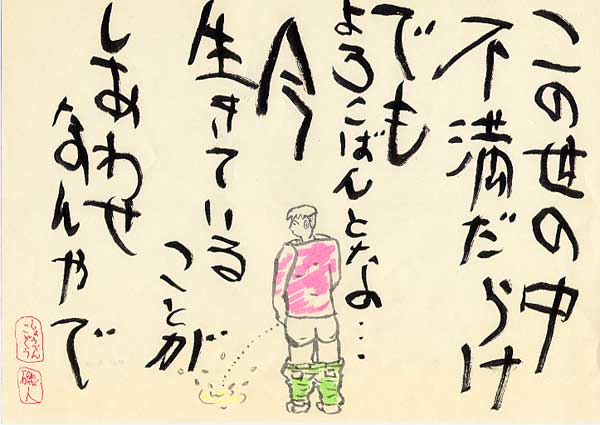 この世の中
不満だらけ
でも
よろこばんとなぁ…
今
生きている
ことが
しあわせ
なんやで
しょうべん
こぞう
職人